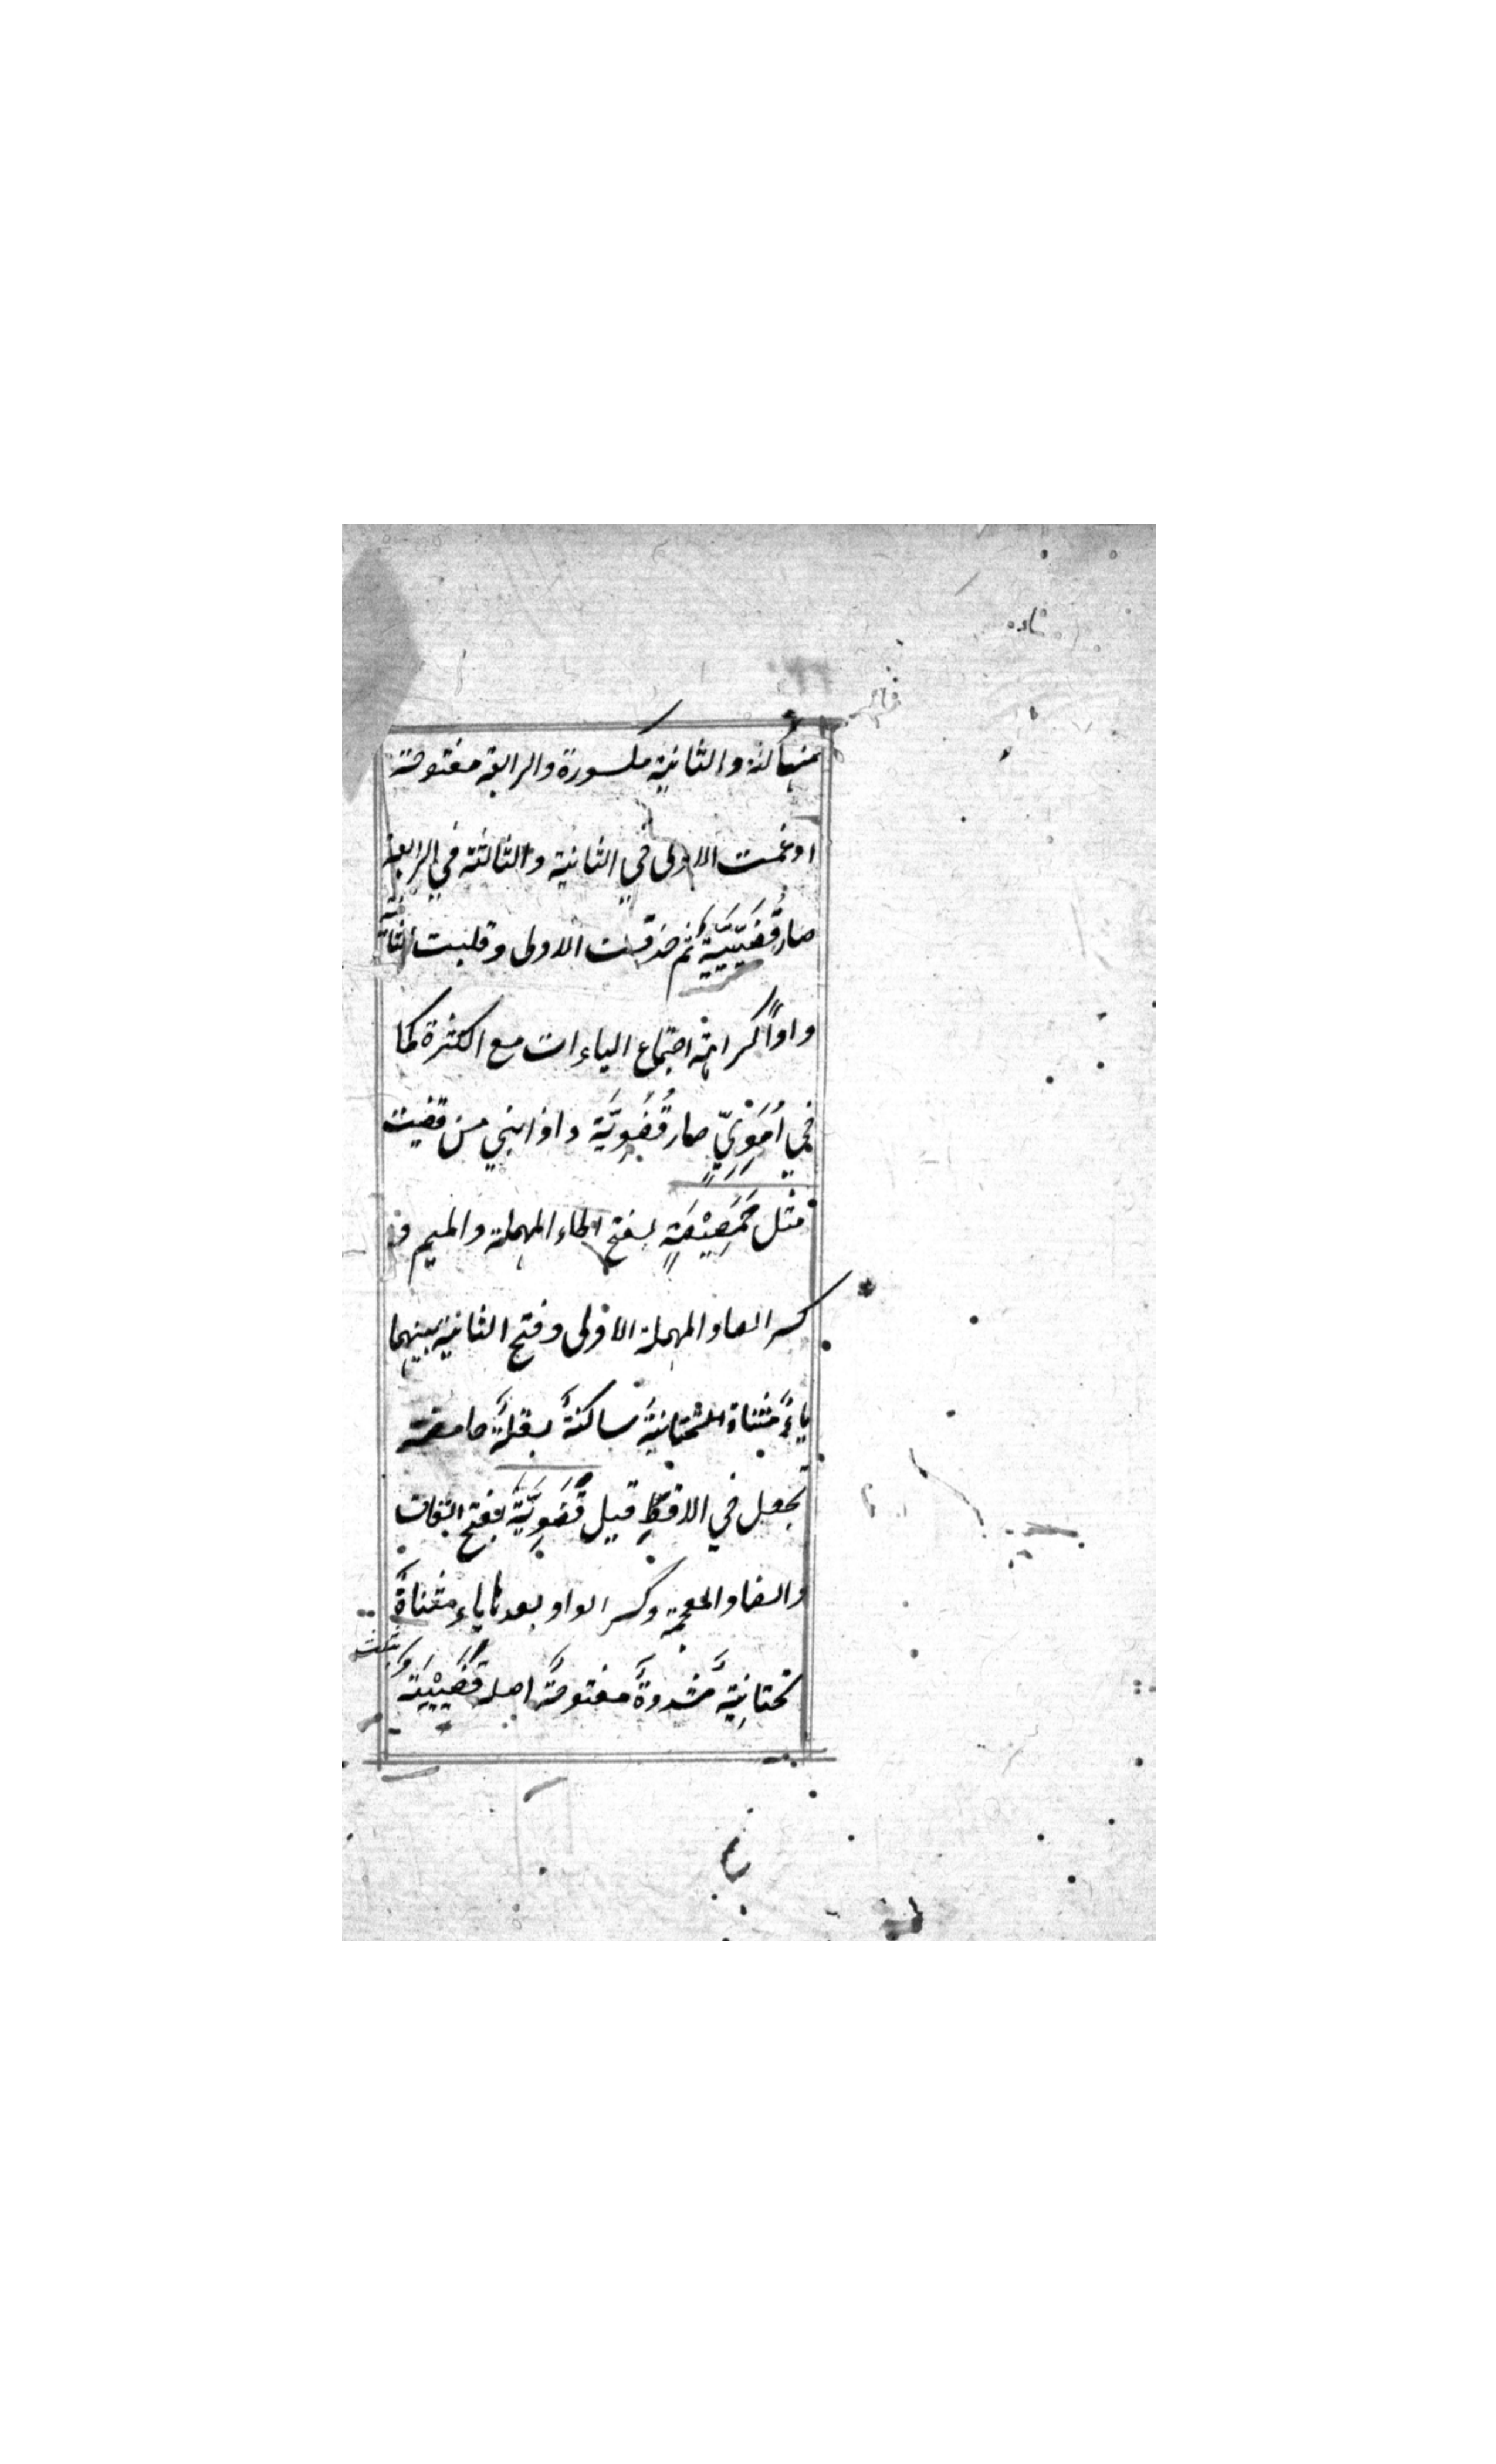 منها كنة والثانية مكسورة والرابعة مفتوحة
ادغمت الاولى في الثانية والثالثة في الرابعة
صار قُضَيِّيَّة ثم حذفت الاولى وقلبت الثانية
واوًا كراهة اجتماع الياءات مع الكثرة كما
في اُمَوِيٍّ صار قُضَوِيَّة واذا بني من قضيت
مثل حَمَصِيْصَةٍ بفتح الحاء المهملة والميم و
كسر الصاد المهملة الاولى وفتح الثانية بينهما
ياءٌ مثناة تحتانيةٌ ساكنةٌ بقلةٌ حامضة
تجعل في الاقط قيل قَضَوِيَّةٌ بفتح القاف
والضاد المعجمة وكسر الواو بعدها ياء مثناةٌ
تحتانيةٌ مشددةٌ مفتوحةٌ اصله قَضَيِيْيَة